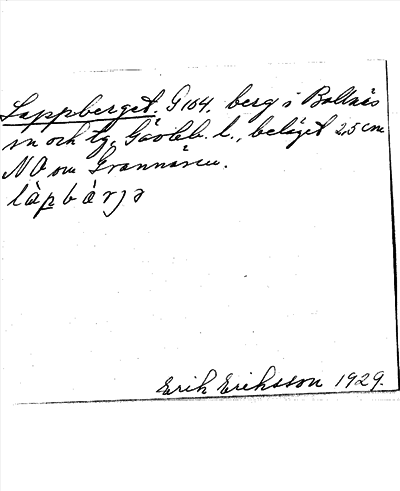 Lappberget. G 104. berg i Bollnäs
sn och tg, Gävleb. l., beläget 2,5 cm
NO om Grannäsen.
làpbàrjə
Erik Eriksson 1929.